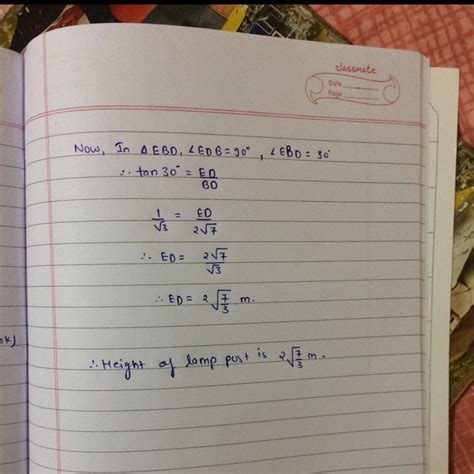 classmate
Date
Page
Now, In Δ EBD, ∠EDB = 90°, ∠EBD = 30°
∴ tan 30° = ED/BD
1/√3 = ED/2√7
∴ ED = 2√7/√3
∴ ED = 2√(7/3) m.
ok)
∴ Height of lamp post is 2√(7/3) m.